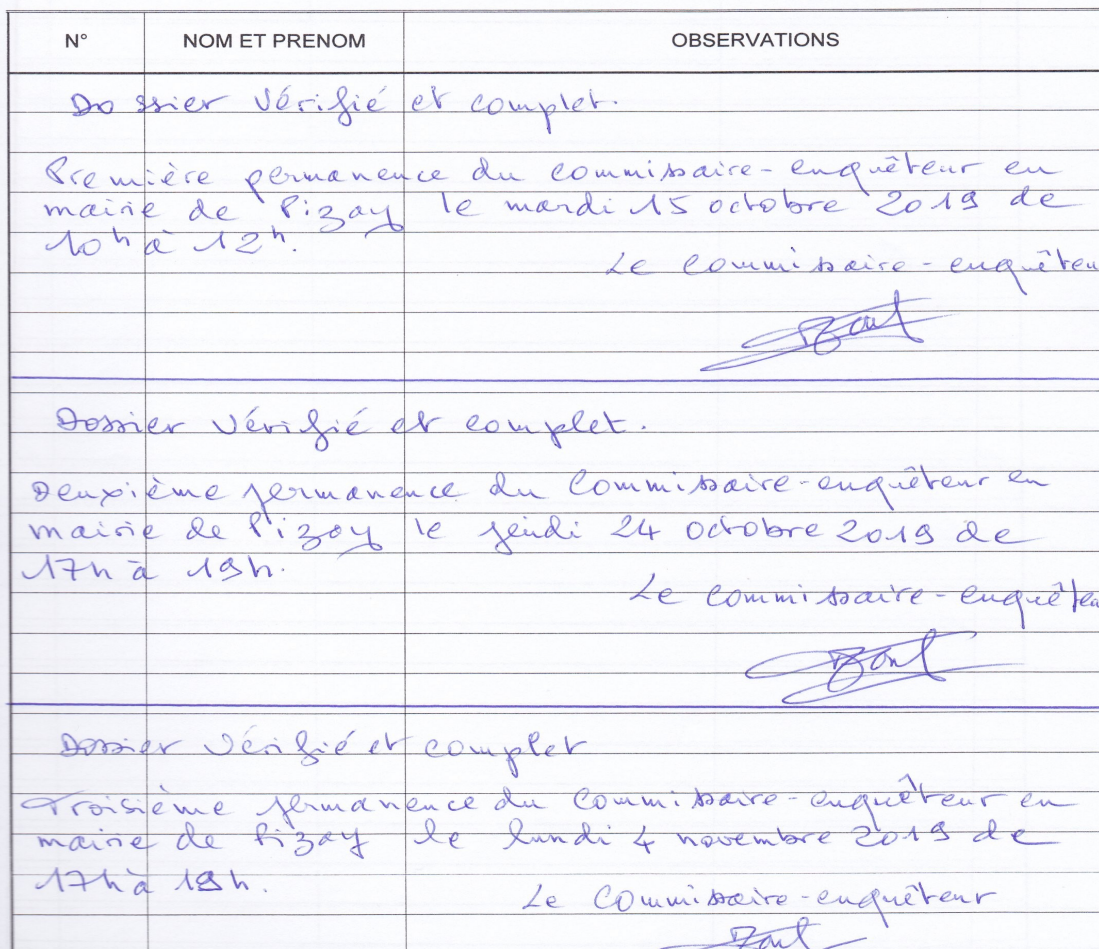 N° NOM ET PRENOM OBSERVATIONS
Dossier vérifié et complet.
Première permanence du commissaire-enquêteur en
mairie de Pizay le mardi 15 octobre 2019 de
10h à 12h.
Le commissaire-enquêteu
Dossier vérifié et complet.
Deuxième permanence du Commissaire-enquêteur en
mairie de Pizay le jeudi 24 octobre 2019 de
17h à 19h.
Le Commissaire-enquêteu
Dossier vérifié et complet
Troisième permanence du Commissaire-enquêteur en
mairie de Pizay le lundi 4 novembre 2019 de
17h à 19h.
Le Commissaire-enquêteur